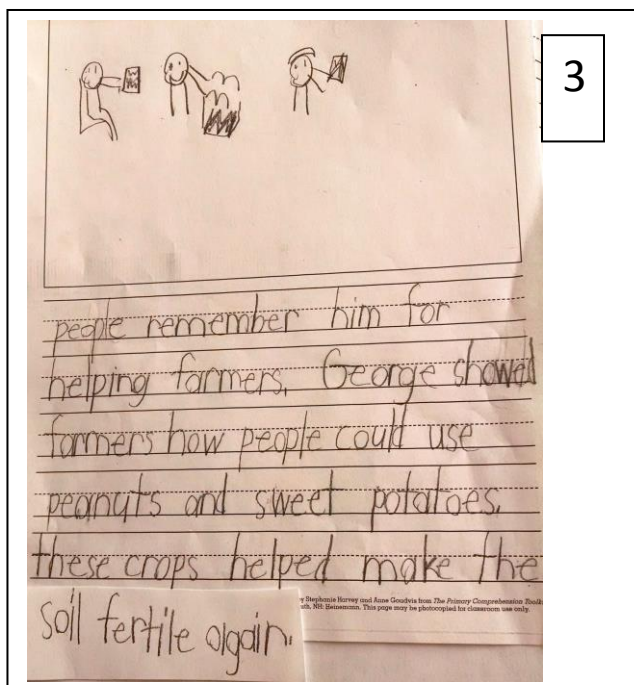 3
people remember him for
helping farmers. George showed
farmers how people could use
peanuts and sweet potatoes.
these crops helped make the
soil fertile again.
Stephanie Harvey and Anne Goudvis from The Primary Comprehension Toolk
NH: Heinemann. This page may be photocopied for classroom use only.